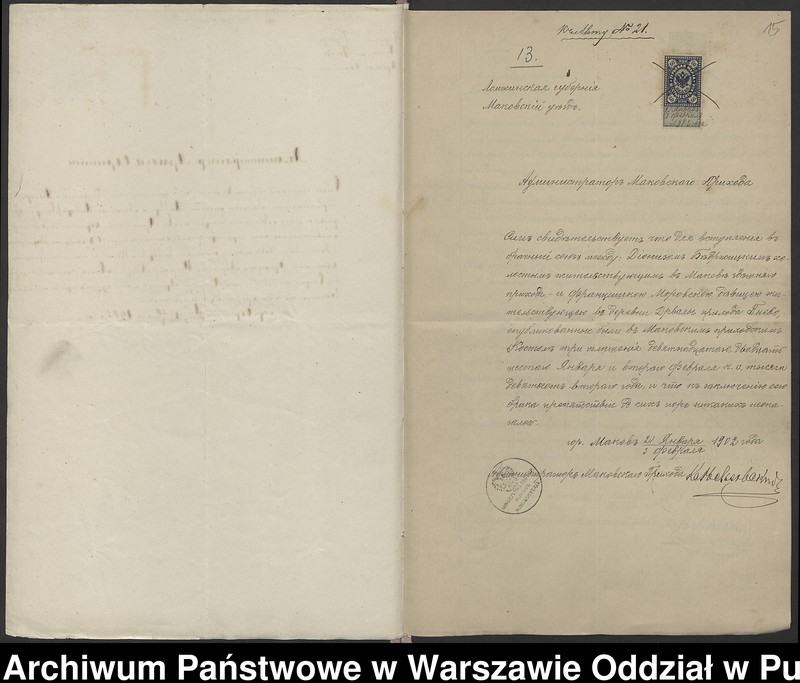 15
къ Акту № 21.
13.
Ломжинская губернія
Маковскій уѣздъ.
Администраторъ Маковскаго Прихода
Симъ свидѣтельствуетъ что для вступленія въ
брачный союзъ между: Діонизіемъ хо-
лостымъ жительствующимъ въ Маковѣ здѣшняго
прихода и Францишкою Моровскою дѣвицею жи-
тельствующею въ деревни Дрвалы прихода
опубликованные были въ Маковскимъ приходскимъ
Костелѣ три оглашенія девятнадцатаго двадцать
шестаго Января и втораго Февраля с. г. тысяча
девятьсотъ втораго года, и что къ заключенію сего
брака препятствіе до сихъ поръ никакихъ неока-
залось.
гор. Маковъ 21 Января 1902 года
3 февраля
Администраторъ Маковскаго Прихода
Archiwum Państwowe w Warszawie Oddział w Pu